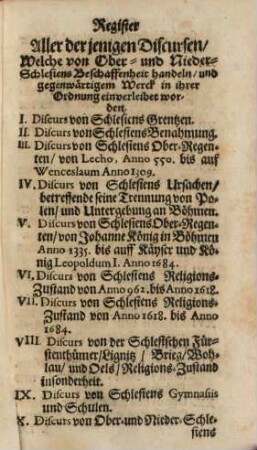 Register
Aller der jenigen Discursen/
Welche von Ober- und Nieder-
Schlesiens Beschaffenheit handeln/ und
gegenwärtigem Werck in ihrer
Ordnung einverleibet wor-
den.
I. Discurs von Schlesiens Grentzen.
II. Discurs von Schlesiens Benahmung.
III. Discurs von Schlesiens Ober-Regen-
ten/ von Lecho, Anno 550. bis auf
Wenceslaum Anno 1309.
IV. Discurs von Schlesiens Ursachen/
betreffende seine Trennung von Po-
len/ und Untergebung an Böhmen.
V. Discurs von Schlesiens Ober-Regen-
ten/ von Johanne König in Böhmen
Anno 1335. bis auff Käyser und Kö-
nig Leopoldum I. Anno 1684.
VI. Discurs von Schlesiens Religions-
Zustand von Anno 962. bis Anno 1618.
VII. Discurs von Schlesiens Religions-
Zustand von Anno 1618. bis Anno
1684.
VIII. Discurs von der Schlesischen Für-
stenthümer/ Lignitz/ Brieg/ Woh-
lau/ und Oels/ Religions-Zustand
insonderheit.
IX. Discurs von Schlesiens Gymnasiis
und Schulen.
X. Discurs von Ober- und Nieder-Schle-
siens